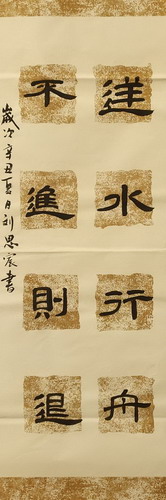 逆水行舟
不進則退
歲次辛丑夏月利思宸書